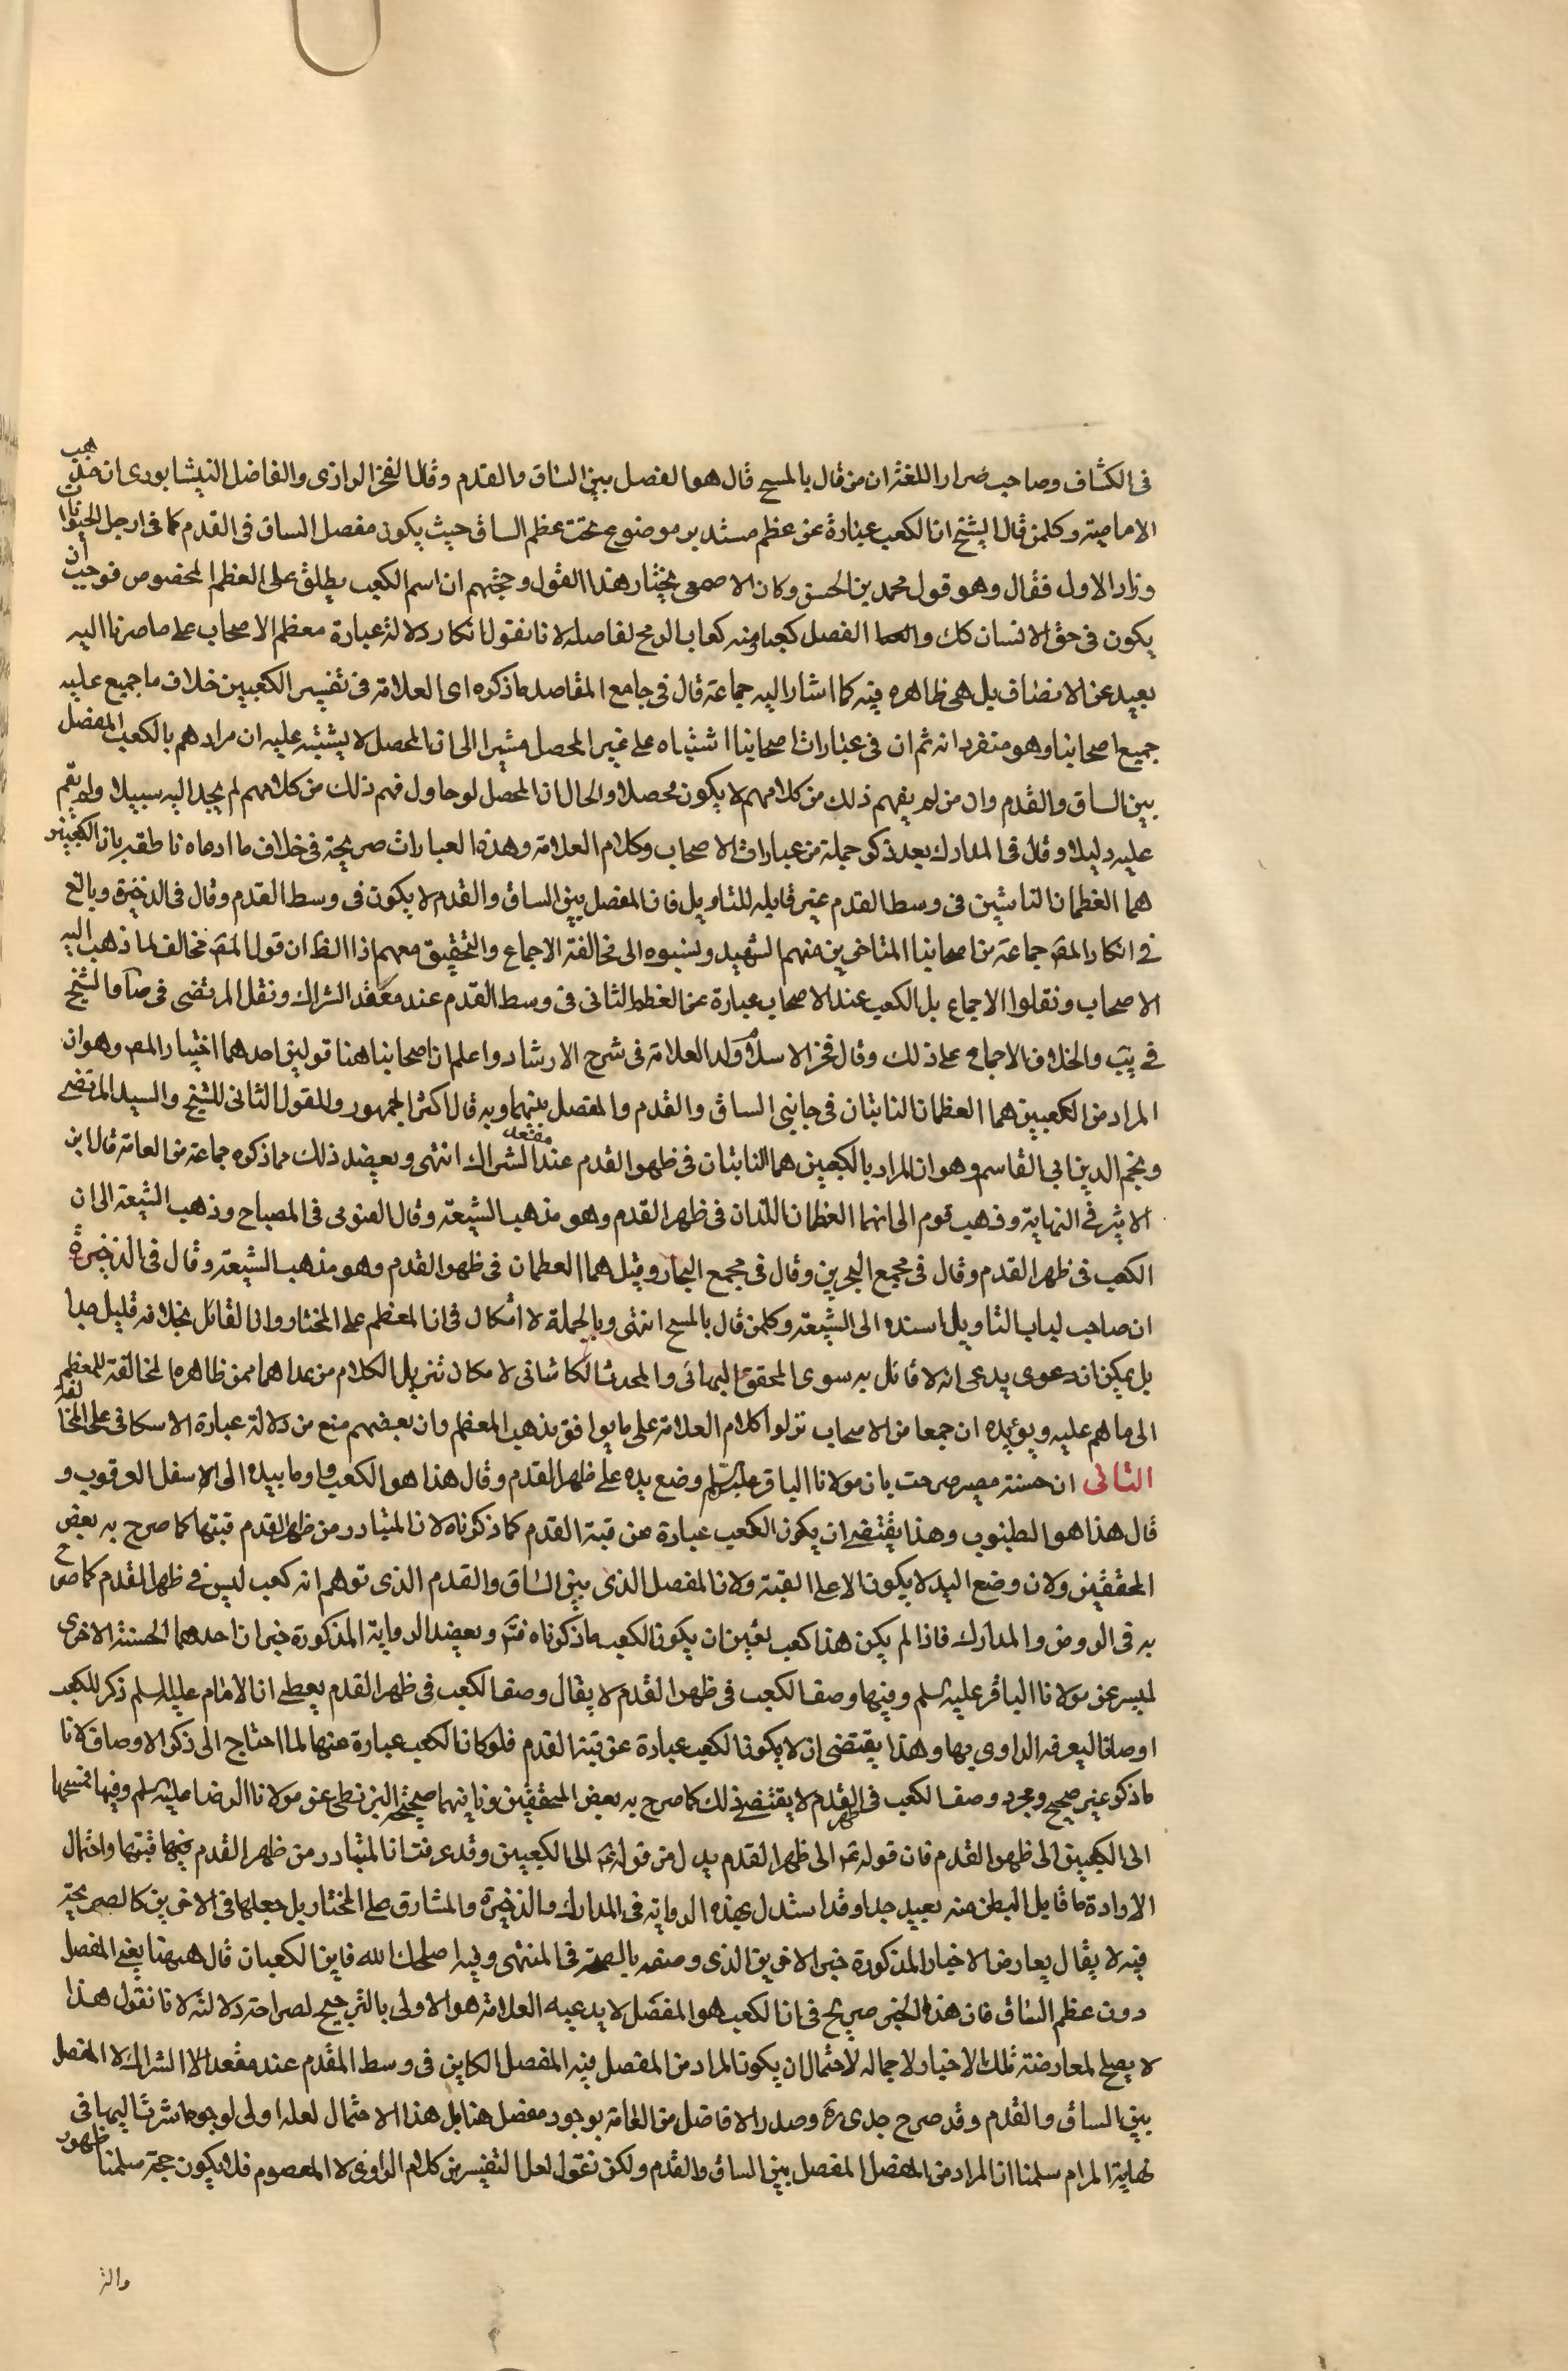 فى الكشاف وصاحب ضرار اللغة ان من قال بالمسح قال هو المفصل بين الساق والقدم وقال الفخر الرازى والفاضل النيشابورى ان مذهب
الامامية وكلمن قال الشيخ ان الكعب عبارة عن عظم مستدير موضوع تحت عظم الساق حيث يكون مفصل الساق فى القدم كما فى ارجل الحيوانات
وزاد الاول فقال وهو قول محمد بن الحسن وكان الاصمعى يختار هذا القول وحجتهم ان اسم الكعب يطلق على العظم المخصوص فوجب ان
يكون فى حق الانسان كك والعما المفصل كعبا ومنه كعاب الرمح لمفاصله لانا نقول انكار دلالة عبارة معظم الاصحاب على ما صرنا اليه
بعيد عن الانصاف بل هى ظاهره فيه كما اشار اليه جماعة قال فى جامع المقاصد ما ذكره اى العلامة فى تفسير الكعبين خلاف ما جميع عليه
جميع اصحابنا وهو متفرد انه ثم ان فى عبارات اصحابنا اشتباه على غير المحصل مشيرا الى ان المحصل لا يشتبه عليه ان مرادهم بالكعب المفصل
بين الساق والقدم وان من لم يفهم ذلك من كلامهم لا يكون محصلا والحال ان المحصل لو حاول فهم ذلك من كلامهم لم يجد اليه سبيلا ولم يقم
عليه دليلا وقال فى المدارك بعد ذكر جملة من عبارات الاصحاب وكلام العلامة وهذه العبارات صريحة فى خلاف ما ادعاه ناطقة بان الكعبين
هما العظمان الناتئين فى وسط القدم غير قابله للتاويل فان المفصل بين الساق والقدم لا يكون فى وسط القدم وقال فى الذخيرة وبالغ
فى انكار المصَ جماعة من اصحابنا المتاخرين منهم الشهيد ونسبوه الى مخالفة الاجماع والتحقيق معهم اذ الظ ان قول المصَ مخالف لما ذهب اليه
الاصحاب ونقلوا الاجماع بل الكعب عند الاصحاب عبارة عن العظم الثانى فى وسط القدم عند معقد الشراك ونقل المرتضى فى صار والشيخ
فى يب والخلاف الاجماع على ذلك وقال فخر الاسلام ولد العلامة فى شرح الارشاد واعلم ان اصحابنا هنا قولين احدهما اختيار المصَ وهو ان
المراد من الكعبين هما العظمان النابتان فى جانبى الساق والقدم والمفصل بينهما وبه قال اكثر الجمهور والقول الثانى للشيخ والسيد المرتضى
ونجم الدين ابى القاسم وهو ان المراد بالكعبين هما النابتان فى ظهر القدم عند مقعد الشراك انتهى ويعضد ذلك مما ذكره جماعة من العامة قال ابن
الاثير فى النهاية وذهب قوم الى انهما العظمان اللذان فى ظهر القدم وهو مذهب الشيعة وقال الفيومى فى المصباح وذهب الشيعة الى ان
الكعب فى ظهر القدم وقال فى مجمع البحرين وقال فى مجمع البحار وقيل هما العظمان فى ظهر القدم وهو مذهب الشيعة وقال فى الذخيرة
ان صاحب لباب التاويل اسنده الى الشيعة وكلمن قال بالمسح انتهى وبالجملة لا اشكال فى ان المعظم على المختار وان القائل بخلافه قليل جدا
بل يمكن ان دعوى يدعى انه لا قائل به سوى المحقق البهائى والمحدث الكاشانى لامكان تنزيل الكلام من عداهما ممن ظاهره المخالفة للمعظم
الى ما هم عليه ويؤيده ان جمعا من الاصحاب نزلوا كلام العلامة على ما يوافق مذهب المعظم وان بعضهم منع من دلالة عبارة الاسكافى على المخالفة
الثانى ان حسنة ميسر صرحت بان مولانا الباقر عليه السلم وضع يده على ظهر القدم وقال هذا هو الكعب واوما بيده الى الاسفل العرقوب و
قال هذا هو الطنبوب وهذا يقتضى ان يكون الكعب عبارة عن قبة القدم كما ذكرناه لان المتبادر من ظهر القدم قبتها كما صرح به بعض
المحققين ولان وضع اليد لا يكون الا على القبة ولان المفصل الذى بين الساق والقدم الذى توهم انه كعب ليس فى ظهر القدم كما صرح
به فى الروض والمدارك فاذا لم يكن هذا كعب تعين ان يكون الكعب ما ذكرناه فتم ويعضد الرواية المذكورة خبران احدهما الحسنة الاخرى
لميسر عن مولانا الباقر عليه السلم وفيها وصف الكعب فى ظهر القدم لا يقال وصف الكعب فى ظهر القدم يعطى ان الامام عليه السلم ذكر للكعب
اوصافا ليعرفه الراوى بها وهذا يقتضى ان لا يكون الكعب عبارة عن قبة القدم فلو كان الكعب عبارة عنها لما احتاج الى ذكر الاوصاف لانا
ما ذكر غير صحيح ومجرد وصف الكعب فى ظهر القدم لا يقتضى ذلك كما صرح به بعض المحققين وثانيهما صحيحة البزنطى عن مولانا الرضا عليه السلم وفيها فمسحها
الى الكعبين الى ظهر القدم فان قوله عَ الى ظهر القدم بدل من قوله عَ الى الكعبين وقد عرفت ان المتبادر من ظهر القدم فيها قبتها واحتمال
الارادة ما قابل البطن منه بعيد جدا وقد استدل بهذه الرواية فى المدارك والذخيرة والمشارق على المختار بل جعلها فى الاخرين كالصريحة
فيه لا يقال يعارض الاخبار المذكورة خبر الاخرين الذى وصفه بالصحة فى المنتهى وفيه اصلحك الله فاين الكعبان قال ههنا يعنى المفصل
دون عظم الساق فان هذا الخبر صريح فى ان الكعب هو المفصل لا يدعيه العلامة هو الاولى بالترجيح لصراحة دلالته لانا نقول هذا
لا يصلح لمعارضة تلك الاخبار لاجماله لاحتمال ان يكون المراد من المفصل فيه المفصل الكاين فى وسط القدم عند مقعد الا الشراك لا المفصل
بين الساق والقدم وقد صرح جدى رَه وصدر الافاضل من العامة بوجود مفصل هنا بل هذا الاحتمال لعله اولى لوجوه اشرنا اليها فى
نهاية المرام سلمنا ان المراد من المفصل المفصل بين الساق والقدم ولكن نقول لعل التفسير من كلام الراوى لا المعصوم فلا يكون حجة سلمنا ظهور
والر